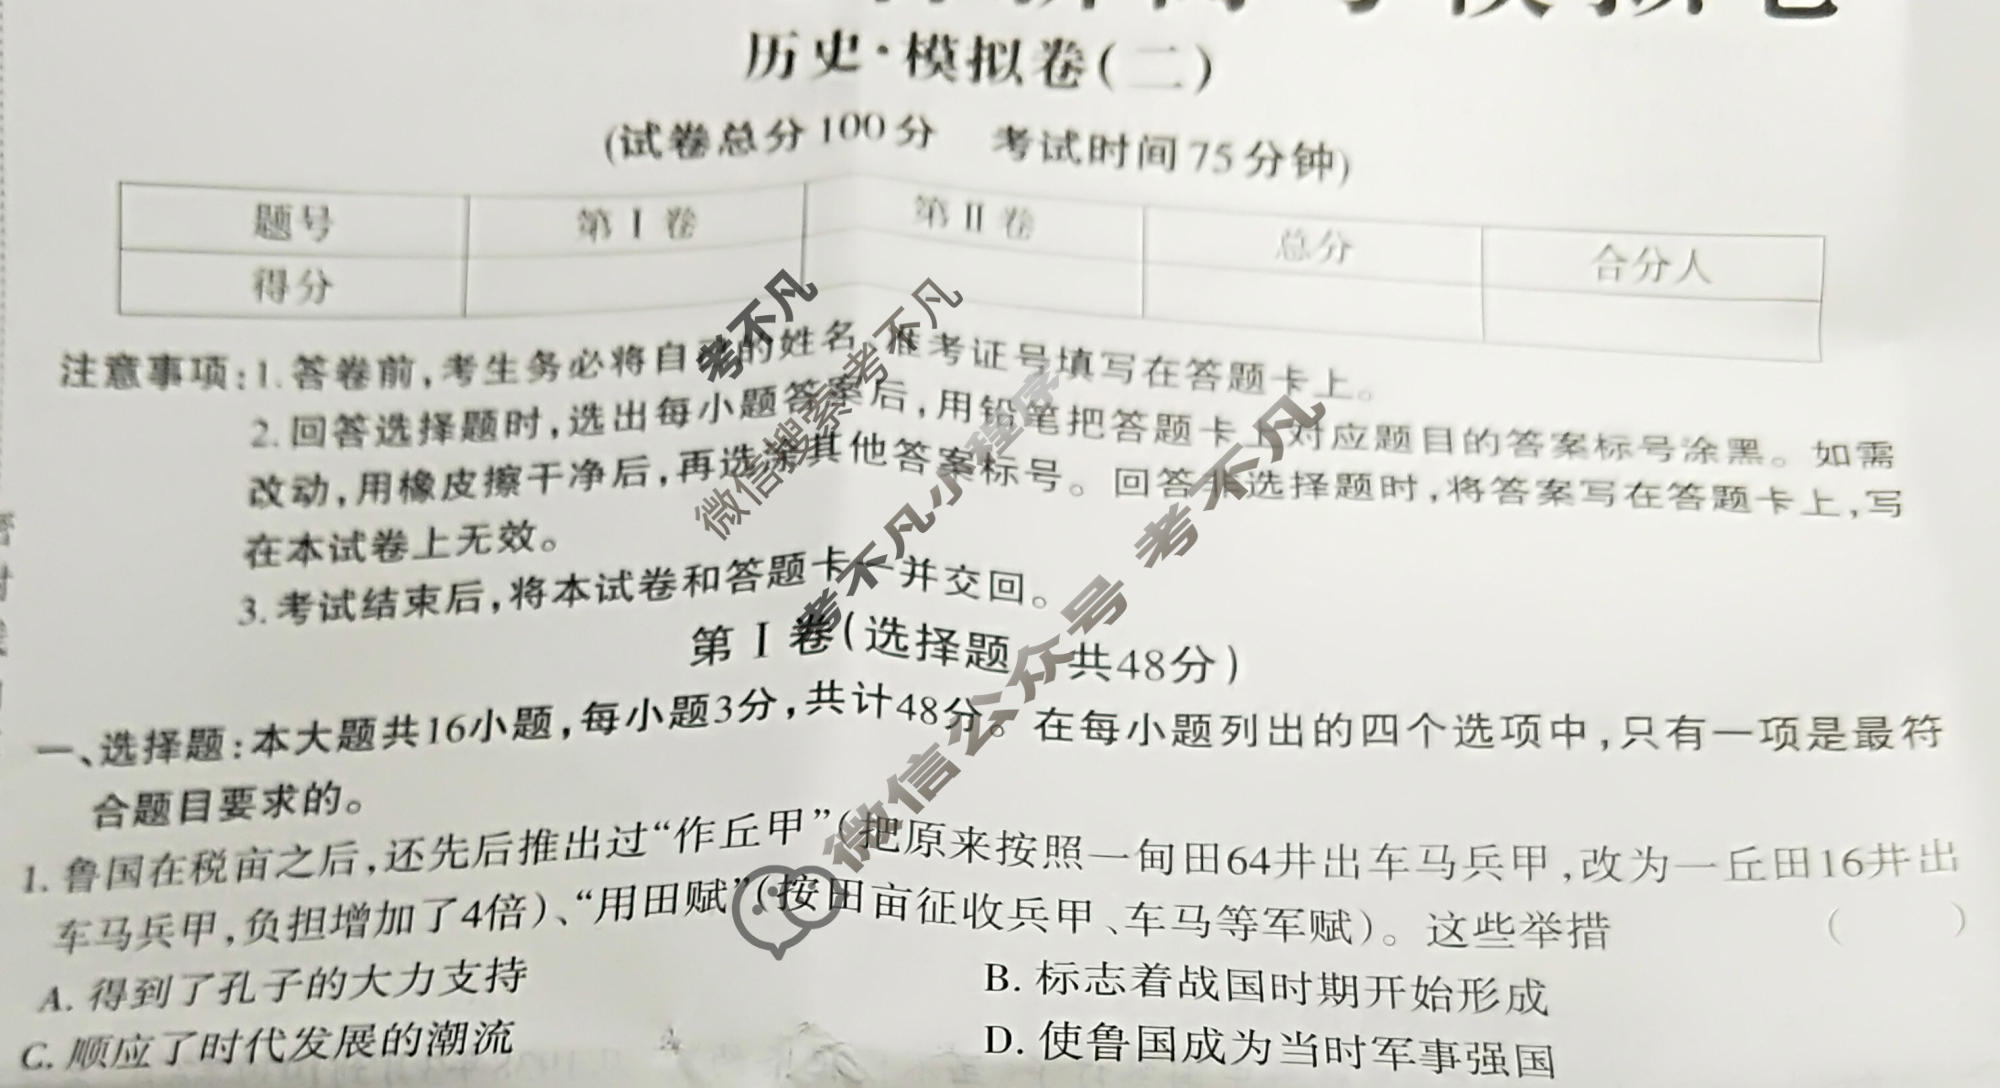 历史·模拟卷(二)
(试卷总分100分 考试时间75分钟)
题号 第Ⅰ卷 第Ⅱ卷 总分 合分人
得分
注意事项:1.答卷前,考生务必将自己的姓名、准考证号填写在答题卡上。
2.回答选择题时,选出每小题答案后,用铅笔把答题卡上对应题目的答案标号涂黑。如需
改动,用橡皮擦干净后,再选涂其他答案标号。回答非选择题时,将答案写在答题卡上,写
在本试卷上无效。
3.考试结束后,将本试卷和答题卡一并交回。
第Ⅰ卷(选择题 共48分)
一、选择题:本大题共16小题,每小题3分,共计48分。在每小题列出的四个选项中,只有一项是最符
合题目要求的。
1.鲁国在税亩之后,还先后推出过“作丘甲”(把原来按照一甸田64井出车马兵甲,改为一丘田16井出
车马兵甲,负担增加了4倍)、“用田赋”(按田亩征收兵甲、车马等军赋)。这些举措 ( )
A.得到了孔子的大力支持 B.标志着战国时期开始形成
C.顺应了时代发展的潮流 D.使鲁国成为当时军事强国
考不凡
微信搜索考不凡
考不凡小程序
微信公众号 考不凡